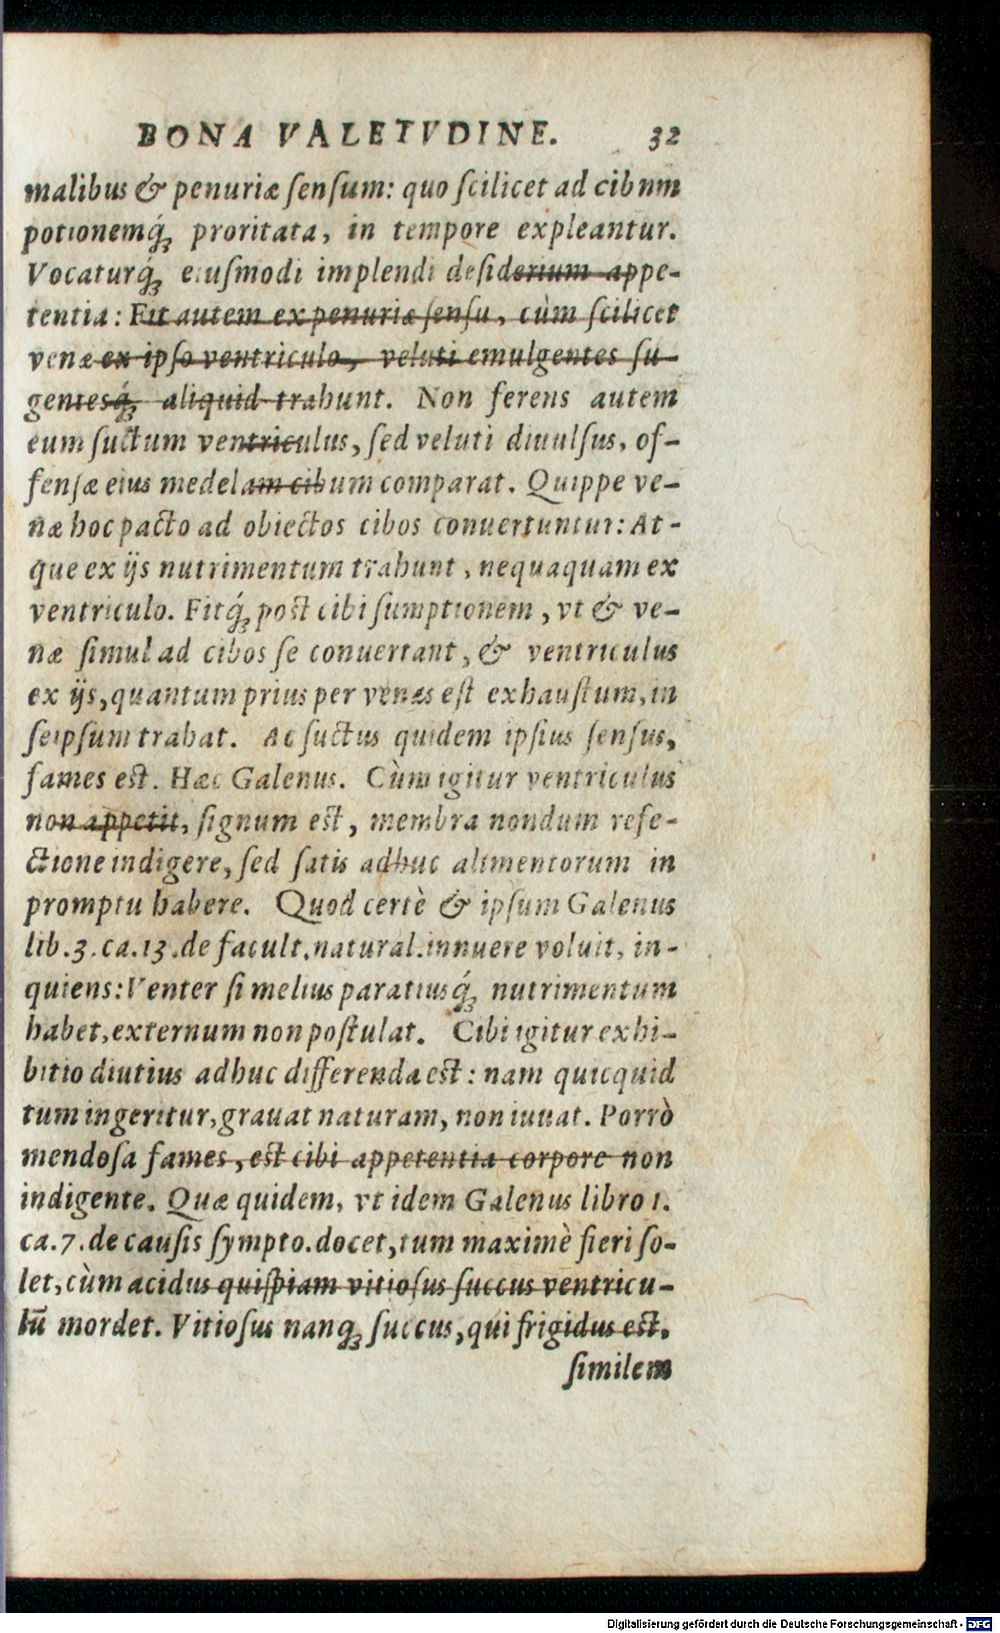 BONA VALETVDINE. 32
malibus & penuriæ ſenſum: quo ſcilicet ad cibum
potionemq́; proritata, in tempore expleantur.
Vocaturq́; eiuſmodi implendi deſiderium appe-
tentia: Fit autem ex penuriæ ſenſu, cùm ſcilicet
venæ ex ipſo ventriculo, veluti emulgentes ſu-
gentesq́; aliquid trahunt. Non ferens autem
eum ſuctum ventriculus, ſed veluti diuulſus, of-
fenſæ eius medelam cibum comparat. Quippe ve-
næ hoc pacto ad obiectos cibos conuertuntur: At-
que ex ijs nutrimentum trahunt, nequaquam ex
ventriculo. Fitq́; post cibi ſumptionem, vt & ve-
næ ſimul ad cibos ſe conuertant, & ventriculus
ex ijs, quantum prius per venas eſt exhauſtum, in
ſeipſum trahat. Ac ſuctus quidem ipſius ſenſus,
fames est. Hæc Galenus. Cùm igitur ventriculus
non appetit, ſignum est, membra nondum refe-
ctione indigere, ſed ſatis adhuc alimentorum in
promptu habere. Quod certè & ipſum Galenus
lib. 3. ca. 13. de facult. natural. innuere voluit, in-
quiens: Venter ſi melius paratiusq́; nutrimentum
habet, externum non poſtulat. Cibi igitur exhi-
bitio diutius adhuc differenda est: nam quicquid
tum ingeritur, grauat naturam, non iuuat. Porrò
mendoſa fames, est cibi appetentia corpore non
indigente. Quæ quidem, vt idem Galenus libro 1.
ca. 7. de cauſis ſympto. docet, tum maximè fieri ſo-
let, cùm acidus quiſpiam vitioſus ſuccus ventricu-
lū mordet. Vitioſus nanq; ſuccus, qui frigidus est,
ſimilem
Digitalisierung gefördert durch die Deutsche Forschungsgemeinschaft - DFG